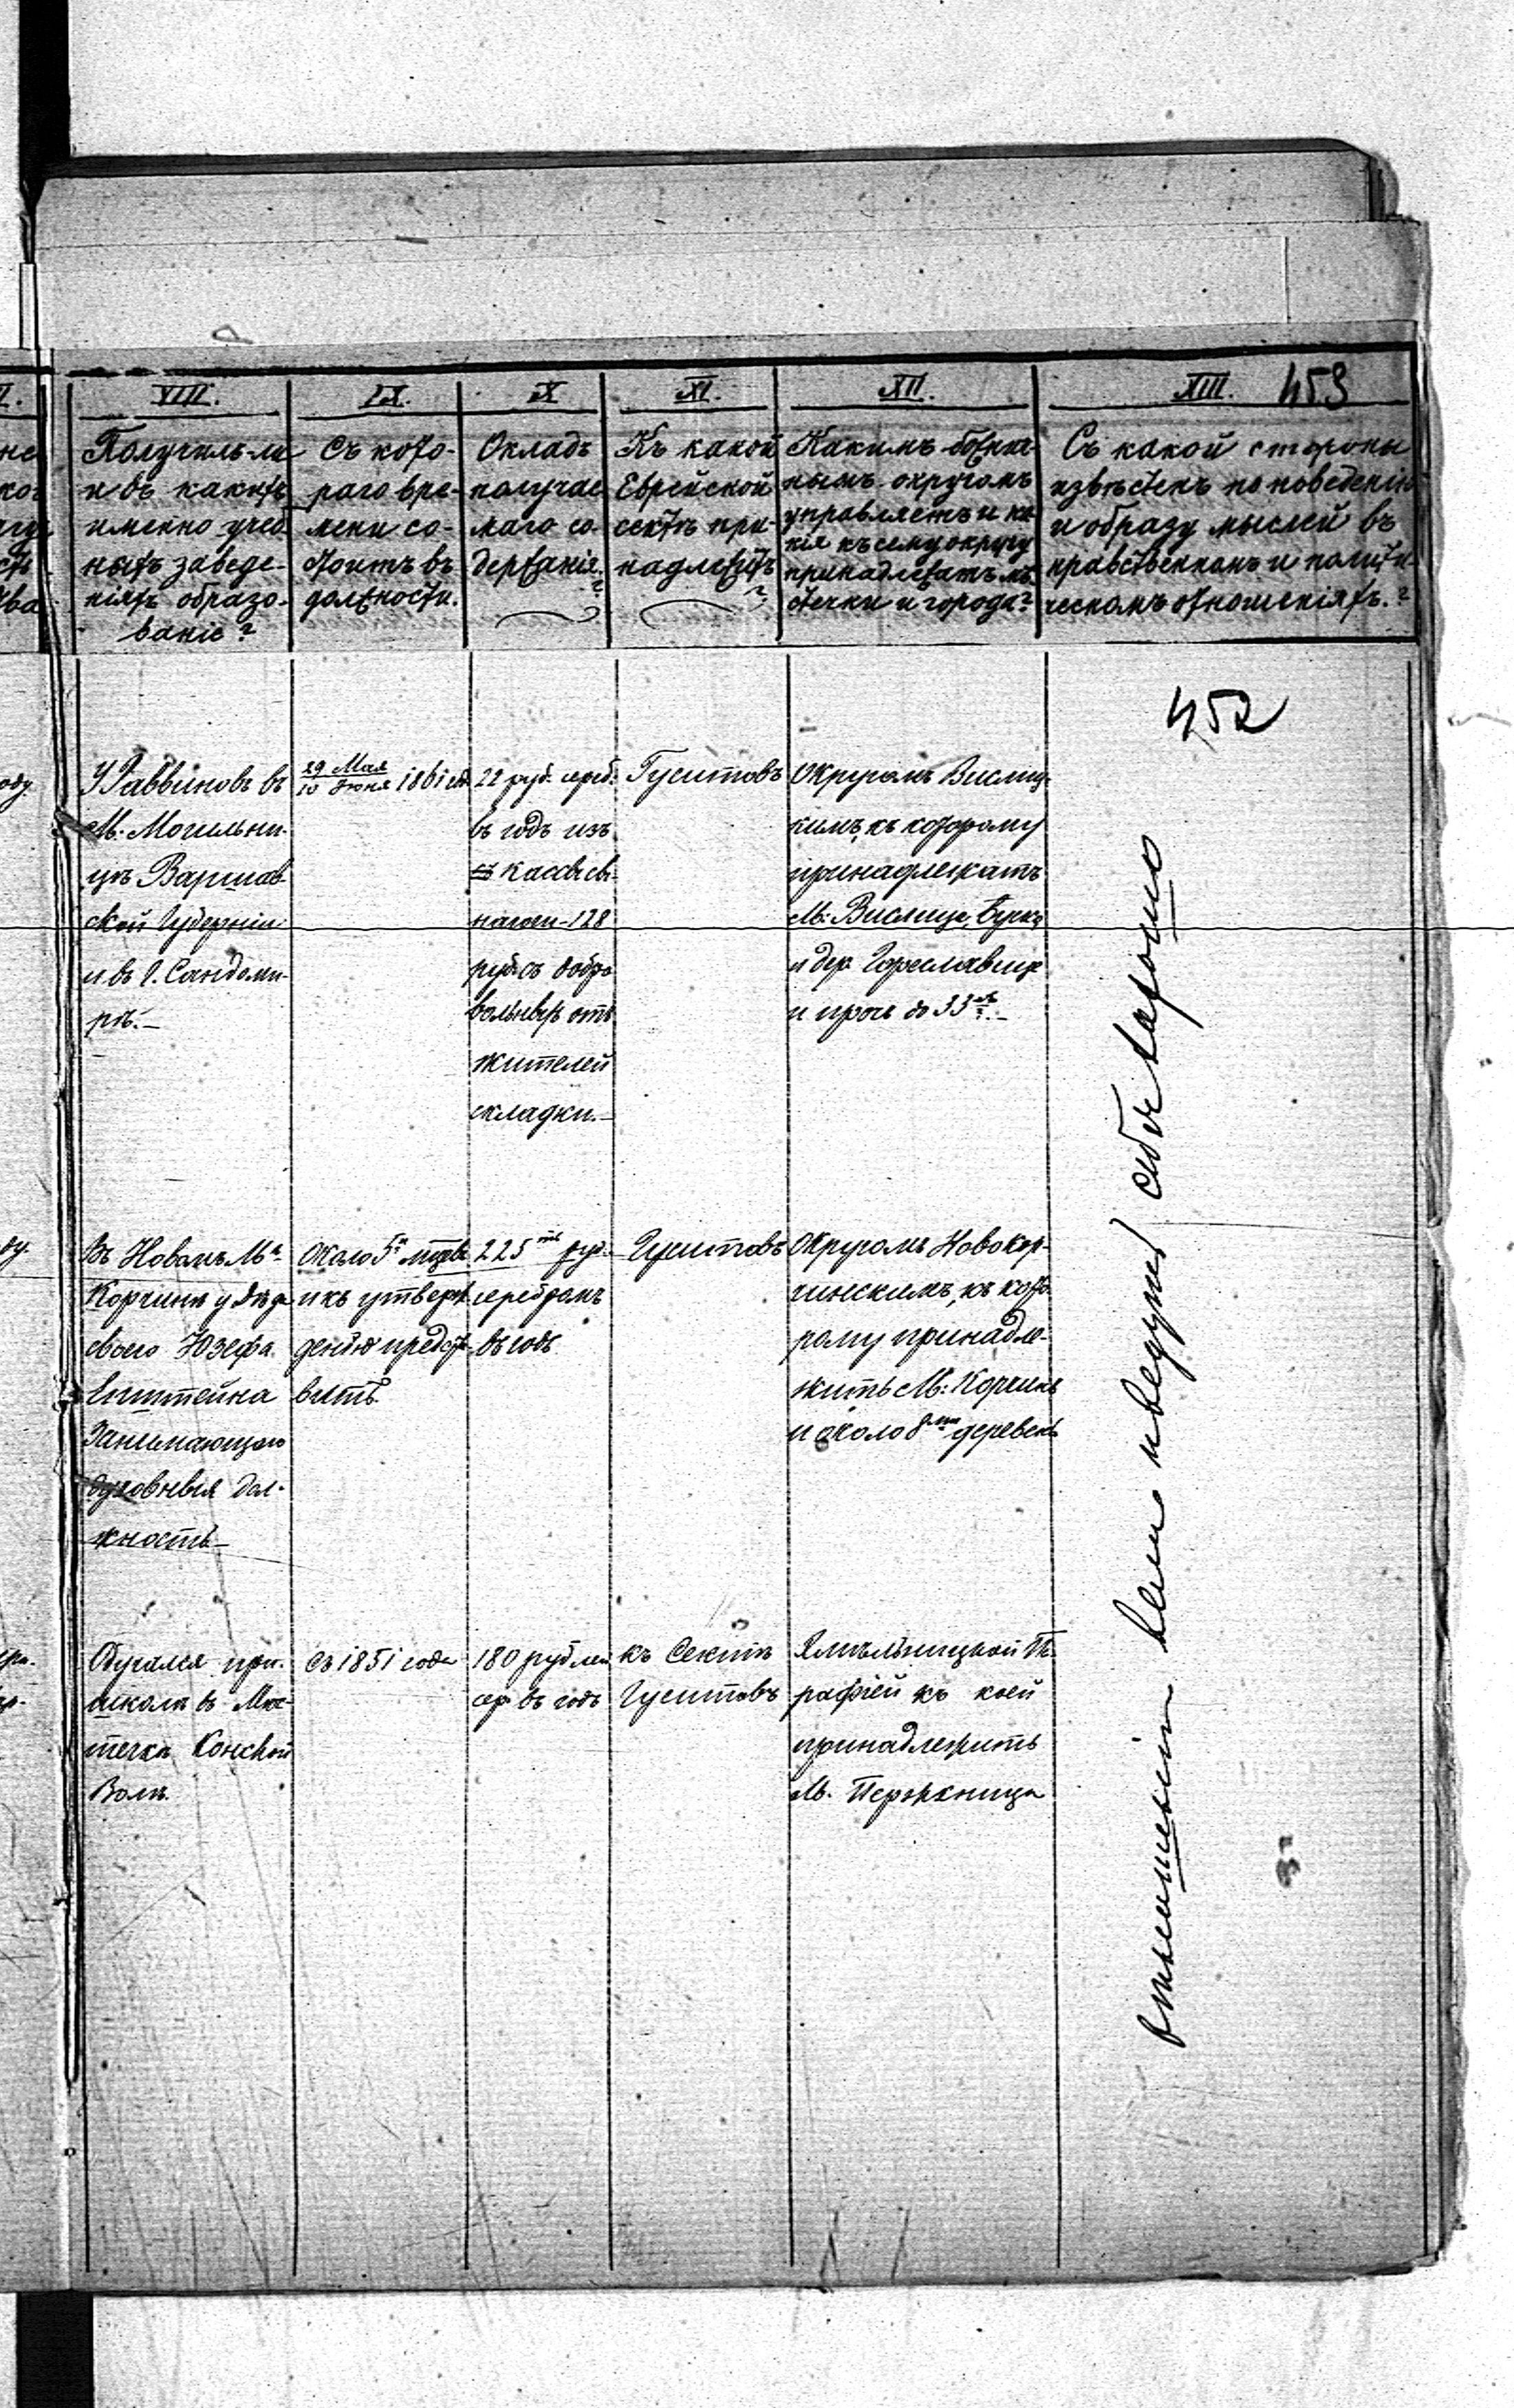 VIII.
Получилъ-ли
и въ какихъ
именно учеб-
ныхъ заведе-
нiяхъ образо-
ванiе?
IX.
Съ кото-
раго вре-
мени со-
стоитъ въ
должности.
X
Окладъ
получае
маго со-
держанiя.
?
XI.
Къ какой
Еврейской
сектѣ при-
надлежитъ
?
XII.
Какимъ
нымъ округомъ
управляетъ и ка
кiя къ сему округу
принадлежатъ мѣ-
стечки и города?
XIII.
453
Съ какой стороны
извѣстенъ по поведенiю
и образу мыслей въ
нравственномъ и полити-
ческомъ отношенiяхъ.?
452
У Раввиновъ въ
М. Могельни-
цѣ Варшав-
ской Губернiи
и въ г. Сандоми-
рѣ.—
29 Мая
10 Iюня 1861
22 руб. сереб.
въ годъ изъ
кассы си-
нагоги - 128
руб. съ добро
вольныхъ отъ
жителей
складки.—
Гуситовъ
Округомъ Вислиц-
кимъ, къ которому
принадлежатъ
М: Вислица,
и дер. Гореславице
и проч. до 33
Въ Новомъ Мѣ
Корчинѣ у Дѣда
своего Юзефа
Епштейна
Занимающаго
духовныя дол-
жность—
Около 5
и къ утверж
денiю предста
витъ.
225 руб.
серебромъ
въ годъ
Гуситовъ
Округомъ Новокор-
чинскимъ, къ кото
рому принадле-
житъ М: Корчинъ
и около 8 деревень
Обучался при
школѣ въ Мѣс-
течкѣ Конской
Волѣ.
съ 1851 года
180 рублей
сер. въ годъ
къ Сектѣ
Гуситовъ
Хмѣльницкой Па
рафiей къ коей
принадлежитъ
М. Пержхница
и ведутъ себя хорошо